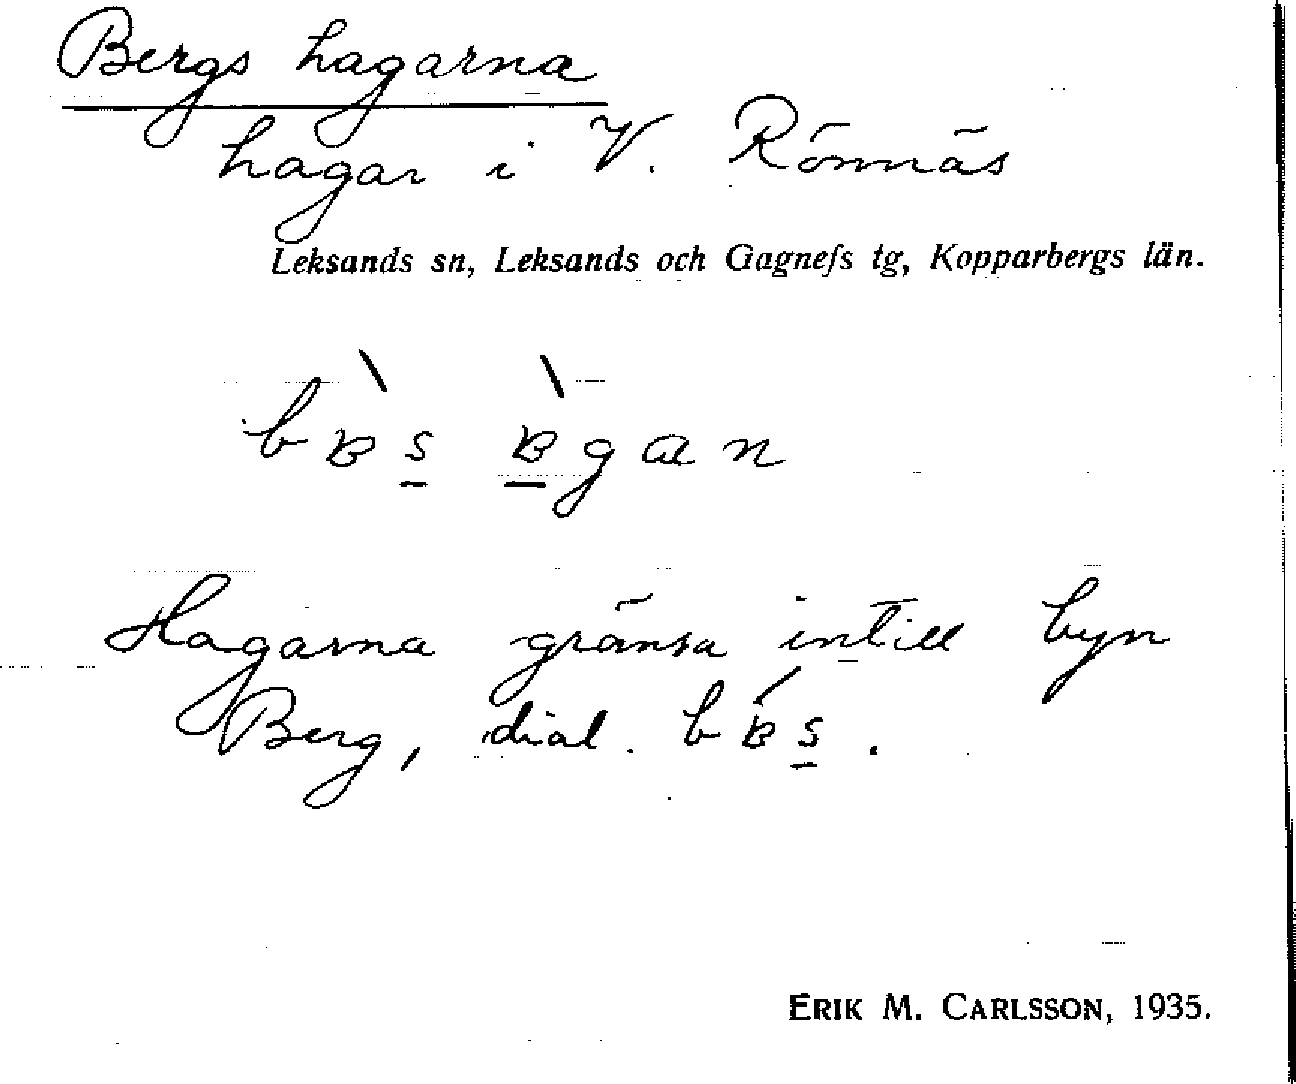 Bergs hagarna
hagar i V. Rönnäs
Leksands sn, Leksands och Gagnefs tg, Kopparbergs län.
Hagarna gränsa intill byn
Berg, dial.
ERIK M. CARLSSON, 1935.